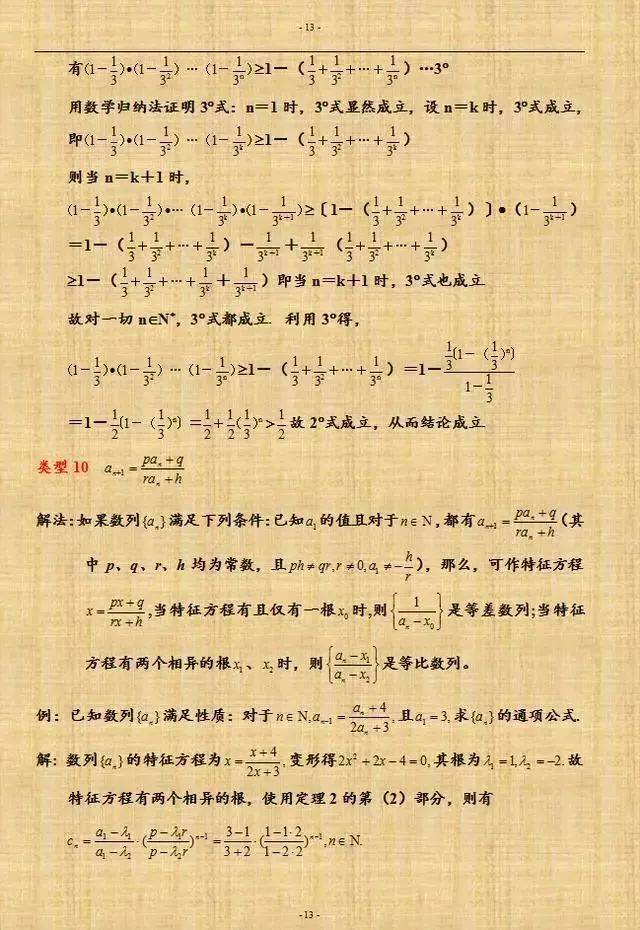 - 13 -
有(1－1/3)•(1－1/3²) … (1－1/3ⁿ)≥1－（1/3＋1/3²＋…＋1/3ⁿ）…3°
用数学归纳法证明3°式：n＝1时，3°式显然成立，设n＝k时，3°式成立，
即(1－1/3)•(1－1/3²) … (1－1/3ᵏ)≥1－（1/3＋1/3²＋…＋1/3ᵏ）
则当n＝k＋1时，
(1－1/3)•(1－1/3²)•… (1－1/3ᵏ)•(1－1/3ᵏ⁺¹)≥〔1－（1/3＋1/3²＋…＋1/3ᵏ）〕•（1－1/3ᵏ⁺¹）
＝1－（1/3＋1/3²＋…＋1/3ᵏ）－1/3ᵏ⁺¹＋1/3ᵏ⁺¹（1/3＋1/3²＋…＋1/3ᵏ）
≥1－（1/3＋1/3²＋…＋1/3ᵏ＋1/3ᵏ⁺¹）即当n＝k＋1时，3°式也成立
故对一切n∈N*，3°式都成立. 利用3°得，
(1－1/3)•(1－1/3²) … (1－1/3ⁿ)≥1－（1/3＋1/3²＋…＋1/3ⁿ）＝1－(1/3)[1－（1/3)ⁿ]/(1－1/3)
＝1－1/2[1－（1/3)ⁿ]＝1/2＋1/2(1/3)ⁿ＞1/2故2°式成立，从而结论成立
类型10 aₙ₊₁=(paₙ+q)/(raₙ+h)
解法:如果数列{aₙ}满足下列条件:已知a₁的值且对于n∈N,都有aₙ₊₁=(paₙ+q)/(raₙ+h)(其
中p、q、r、h均为常数，且ph≠qr,r≠0,a₁≠-h/r)，那么，可作特征方程
x=(px+q)/(rx+h),当特征方程有且仅有一根x₀时,则{1/(aₙ-x₀)}是等差数列;当特征
方程有两个相异的根x₁、x₂时，则{(aₙ-x₁)/(aₙ-x₂)}是等比数列。
例：已知数列{aₙ}满足性质：对于n∈N,aₙ₋₁=(aₙ+4)/(2aₙ+3),且a₁=3,求{aₙ}的通项公式.
解：数列{aₙ}的特征方程为x=(x+4)/(2x+3),变形得2x²+2x-4=0,其根为λ₁=1,λ₂=-2.故
特征方程有两个相异的根，使用定理2的第（2）部分，则有
cₙ=(a₁-λ₁)/(a₁-λ₂)·((p-λ₁r)/(p-λ₂r))ⁿ⁻¹=(3-1)/(3+2)·((1-1·2)/(1-2·2))ⁿ⁻¹,n∈N.
- 13 -